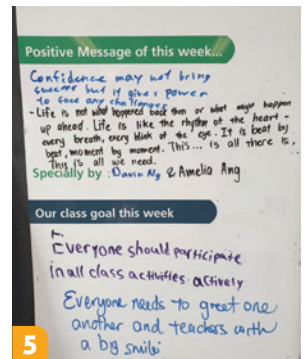 Positive Message of this week...
Confidence may not bring
success but it gives power
to face any challenges
- Life is not what happened back then or what might happen
up ahead. Life is like the rhythm of the heart -
every breath, every blink of the eye. It is beat by
beat, moment by moment. This... is all there is.
This is all we need.
Specially by : Davin Ng & Amelia Ang
Our class goal this week
Everyone should participate
in all class activities actively
Everyone needs to greet one
another and teachers with
a big smile
5